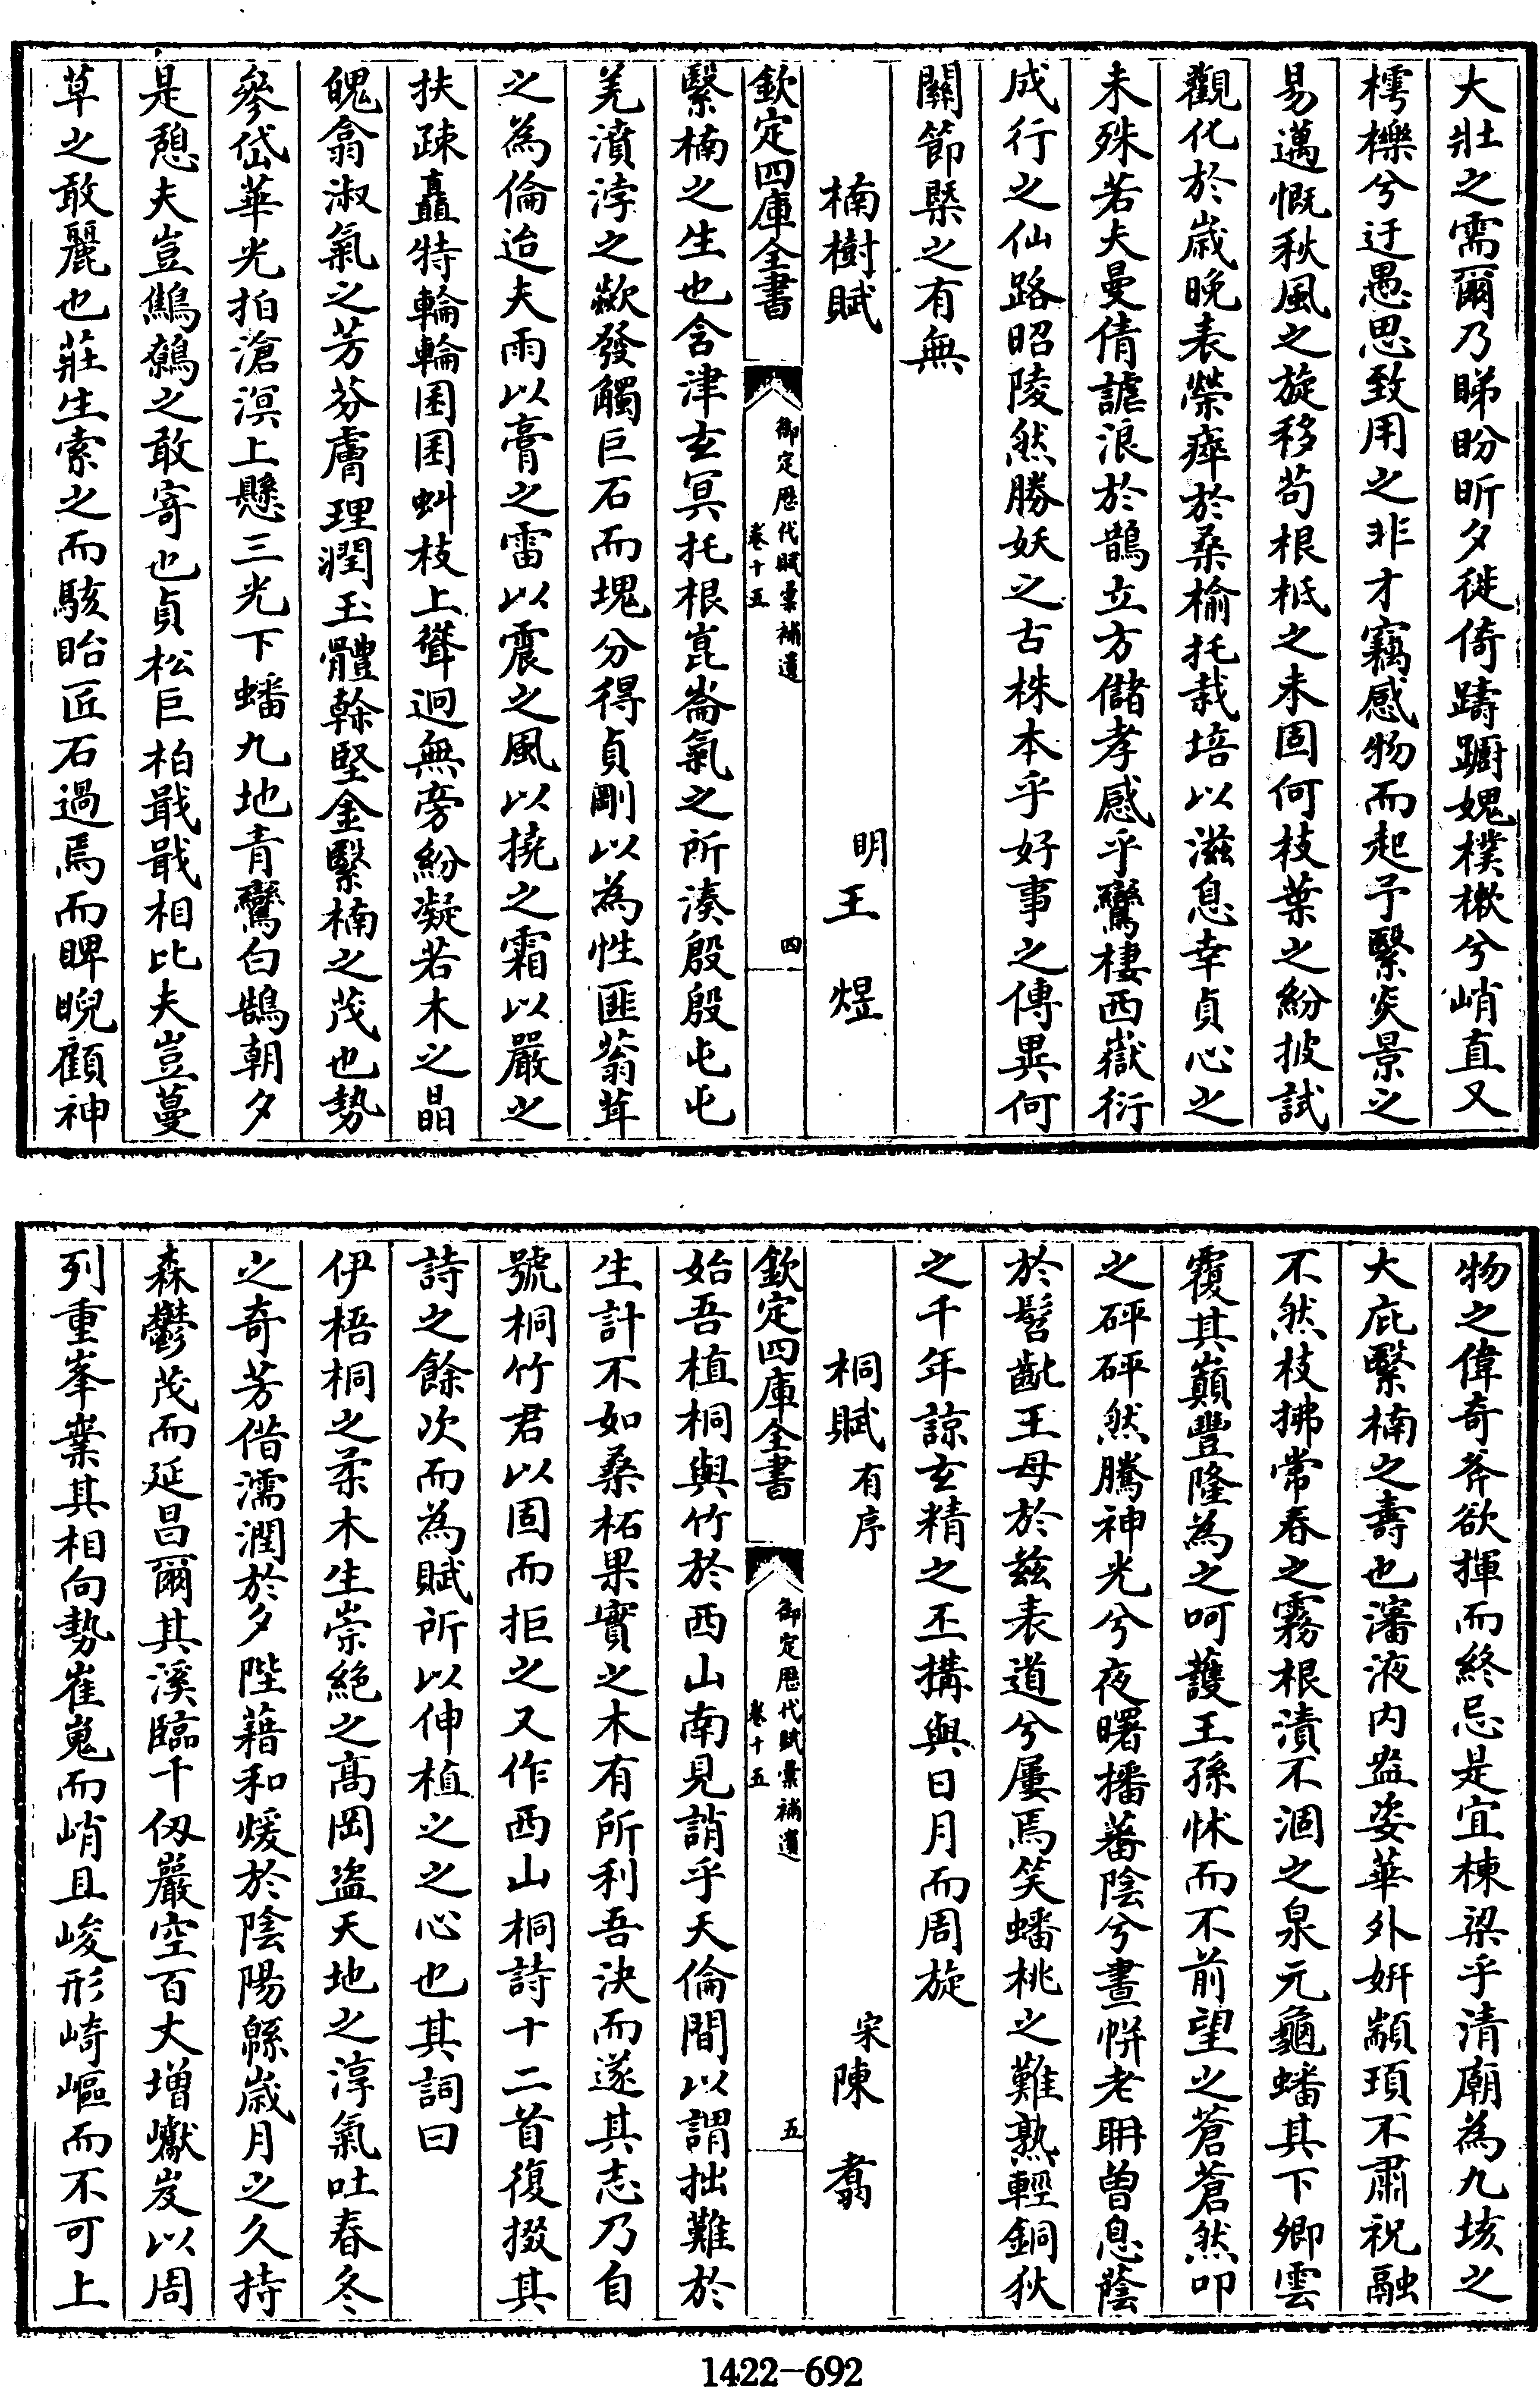 大壯之需爾乃睇盼昕夕徙倚躊躕媿樸樕兮峭直又
樗櫟兮迂愚思致用之非才竊感物而起予繄炎景之
易邁慨秋風之旋移苟根柢之未固何枝葉之紛披試
觀化於歲晚表榮瘁於桑榆托栽培以滋息幸貞心之
未殊若夫曼倩謔浪於鵲立方儲孝感乎鸞棲西嶽衍
成行之仙路昭陵然勝妖之古株本乎好事之傳異何
關節槩之有無
楠樹賦 明王煜
欽定四庫全書 御定歷代賦彙補遺 卷十五 四
繄楠之生也含津玄冥托根崑崙氣之所湊殷殷屯屯
羌濆浡之歘發觸巨石而塊分得貞剛以為性匪蓊茸
之為倫迨夫雨以膏之雷以震之風以撓之霜以嚴之
扶疎矗特輪輪囷囷虯枝上聳迥無旁紛凝若木之晶
魄翕淑氣之芳芬膚理潤玉體榦堅金繄楠之茂也勢
參岱華光拍滄溟上懸三光下蟠九地青鸞白鵠朝夕
是憩夫豈鷦鷯之敢寄也貞松巨柏戢戢相比夫豈蔓
草之敢麗也莊生索之而駭眙匠石過焉而睥睨顧神
物之偉奇斧欲揮而終忌是宜棟梁乎清廟為九垓之
大庇繄楠之壽也瀋液內益姿華外妍顓頊不肅祝融
不然枝拂常春之霧根漬不涸之泉元龜蟠其下卿雲
覆其巔豐隆為之呵護王孫怵而不前望之蒼蒼然叩
之砰砰然騰神光兮夜曙播蕃陰兮晝帡老聃曽息蔭
於髫齓王母於兹表道兮屢焉笑蟠桃之難熟輕銅狄
之千年諒玄精之丕搆與日月而周旋
桐賦有序 宋陳翥
欽定四庫全書 御定歷代賦彙補遺 卷十五 五
始吾植桐與竹於西山南見誚乎天倫間以謂拙難於
生計不如桑柘果實之木有所利吾決而遂其志乃自
號桐竹君以固而拒之又作西山桐詩十二首復掇其
詩之餘次而為賦所以伸植之之心也其詞曰
伊梧桐之柔木生崇絶之髙岡盜天地之淳氣吐春冬
之奇芳借濡潤於夕陛藉和煖於陰陽緜歲月之久持
森鬱茂而延昌爾其溪臨千仭巖空百丈増巘岌以周
列重峯業其相向勢崔嵬而峭且峻形崎嶇而不可上
1422-692